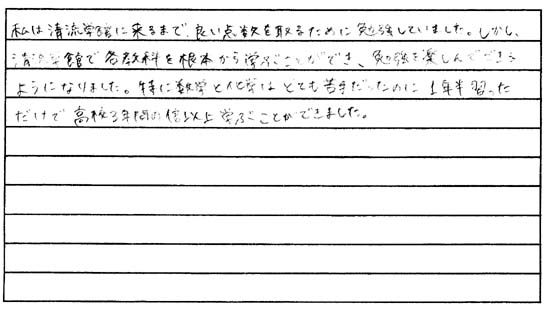 私は清流学館に来るまで、良い点数を取るために勉強していました。しかし、
清流学館で各教科を根本から学ぶことができ、勉強を楽しんでできる
ようになりました。特に数学と化学はとても苦手だったのに1年半習った
だけで高校3年間の倍以上学ぶことができました。